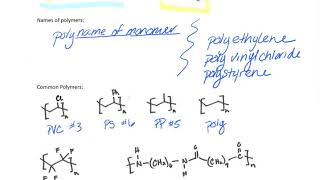 Names of polymers:
poly name of monomer
polyethylene
poly vinylchloride
polystyrene
Common Polymers:
Cl
Ph
n
n
n
n
PVC #3
PS #6
PP #5
poly
F F
F F
n
H
N
(CH2)6
N
H
O
C
(CH2)
O
C
n
n